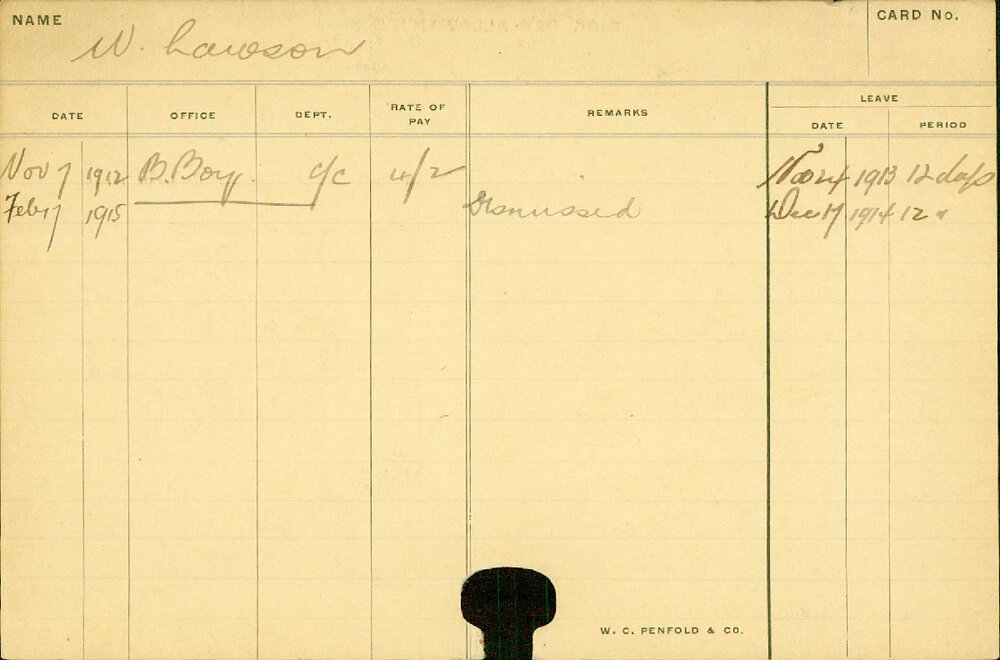 NAME W. Lawson CARD No.
LEAVE
DATE OFFICE DEPT. RATE OF PAY REMARKS DATE PERIOD
Nov 7 1912 B. Boy. c/c 4/2 Nov 24 1913 12 days
Feb 17 1915 Dismissed Dec 17 1914 12 "
W. C. PENFOLD & CO.